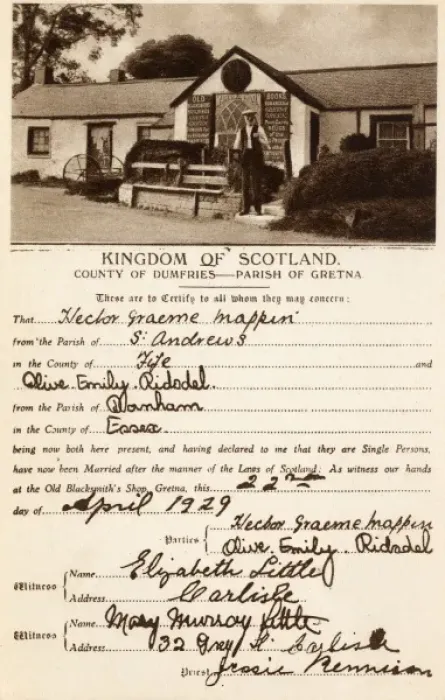 OLD
BOOKS
KINGDOM OF SCOTLAND.
COUNTY OF DUMFRIES—PARISH OF GRETNA
These are to Certify to all whom they may concern:
That Hector Graeme Mappin
from the Parish of St Andrews
in the County of Fife and
Olive Emily Ridsdel
from the Parish of
in the County of Essex
being now both here present, and having declared to me that they are Single Persons,
have now been Married after the manner of the Laws of Scotland: As witness our hands
at the Old Blacksmith's Shop, Gretna, this 22nd
day of April 1929
Parties Hector Graeme Mappin
Olive Emily Ridsdel
Witness Name Elizabeth Little
Address Carlisle
Witness Name Mary Murray Little
Address 32 Grey St Carlisle
Priest